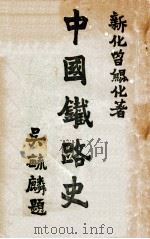 新化曾鯤化著
中國鐵路史
吳毓麟題